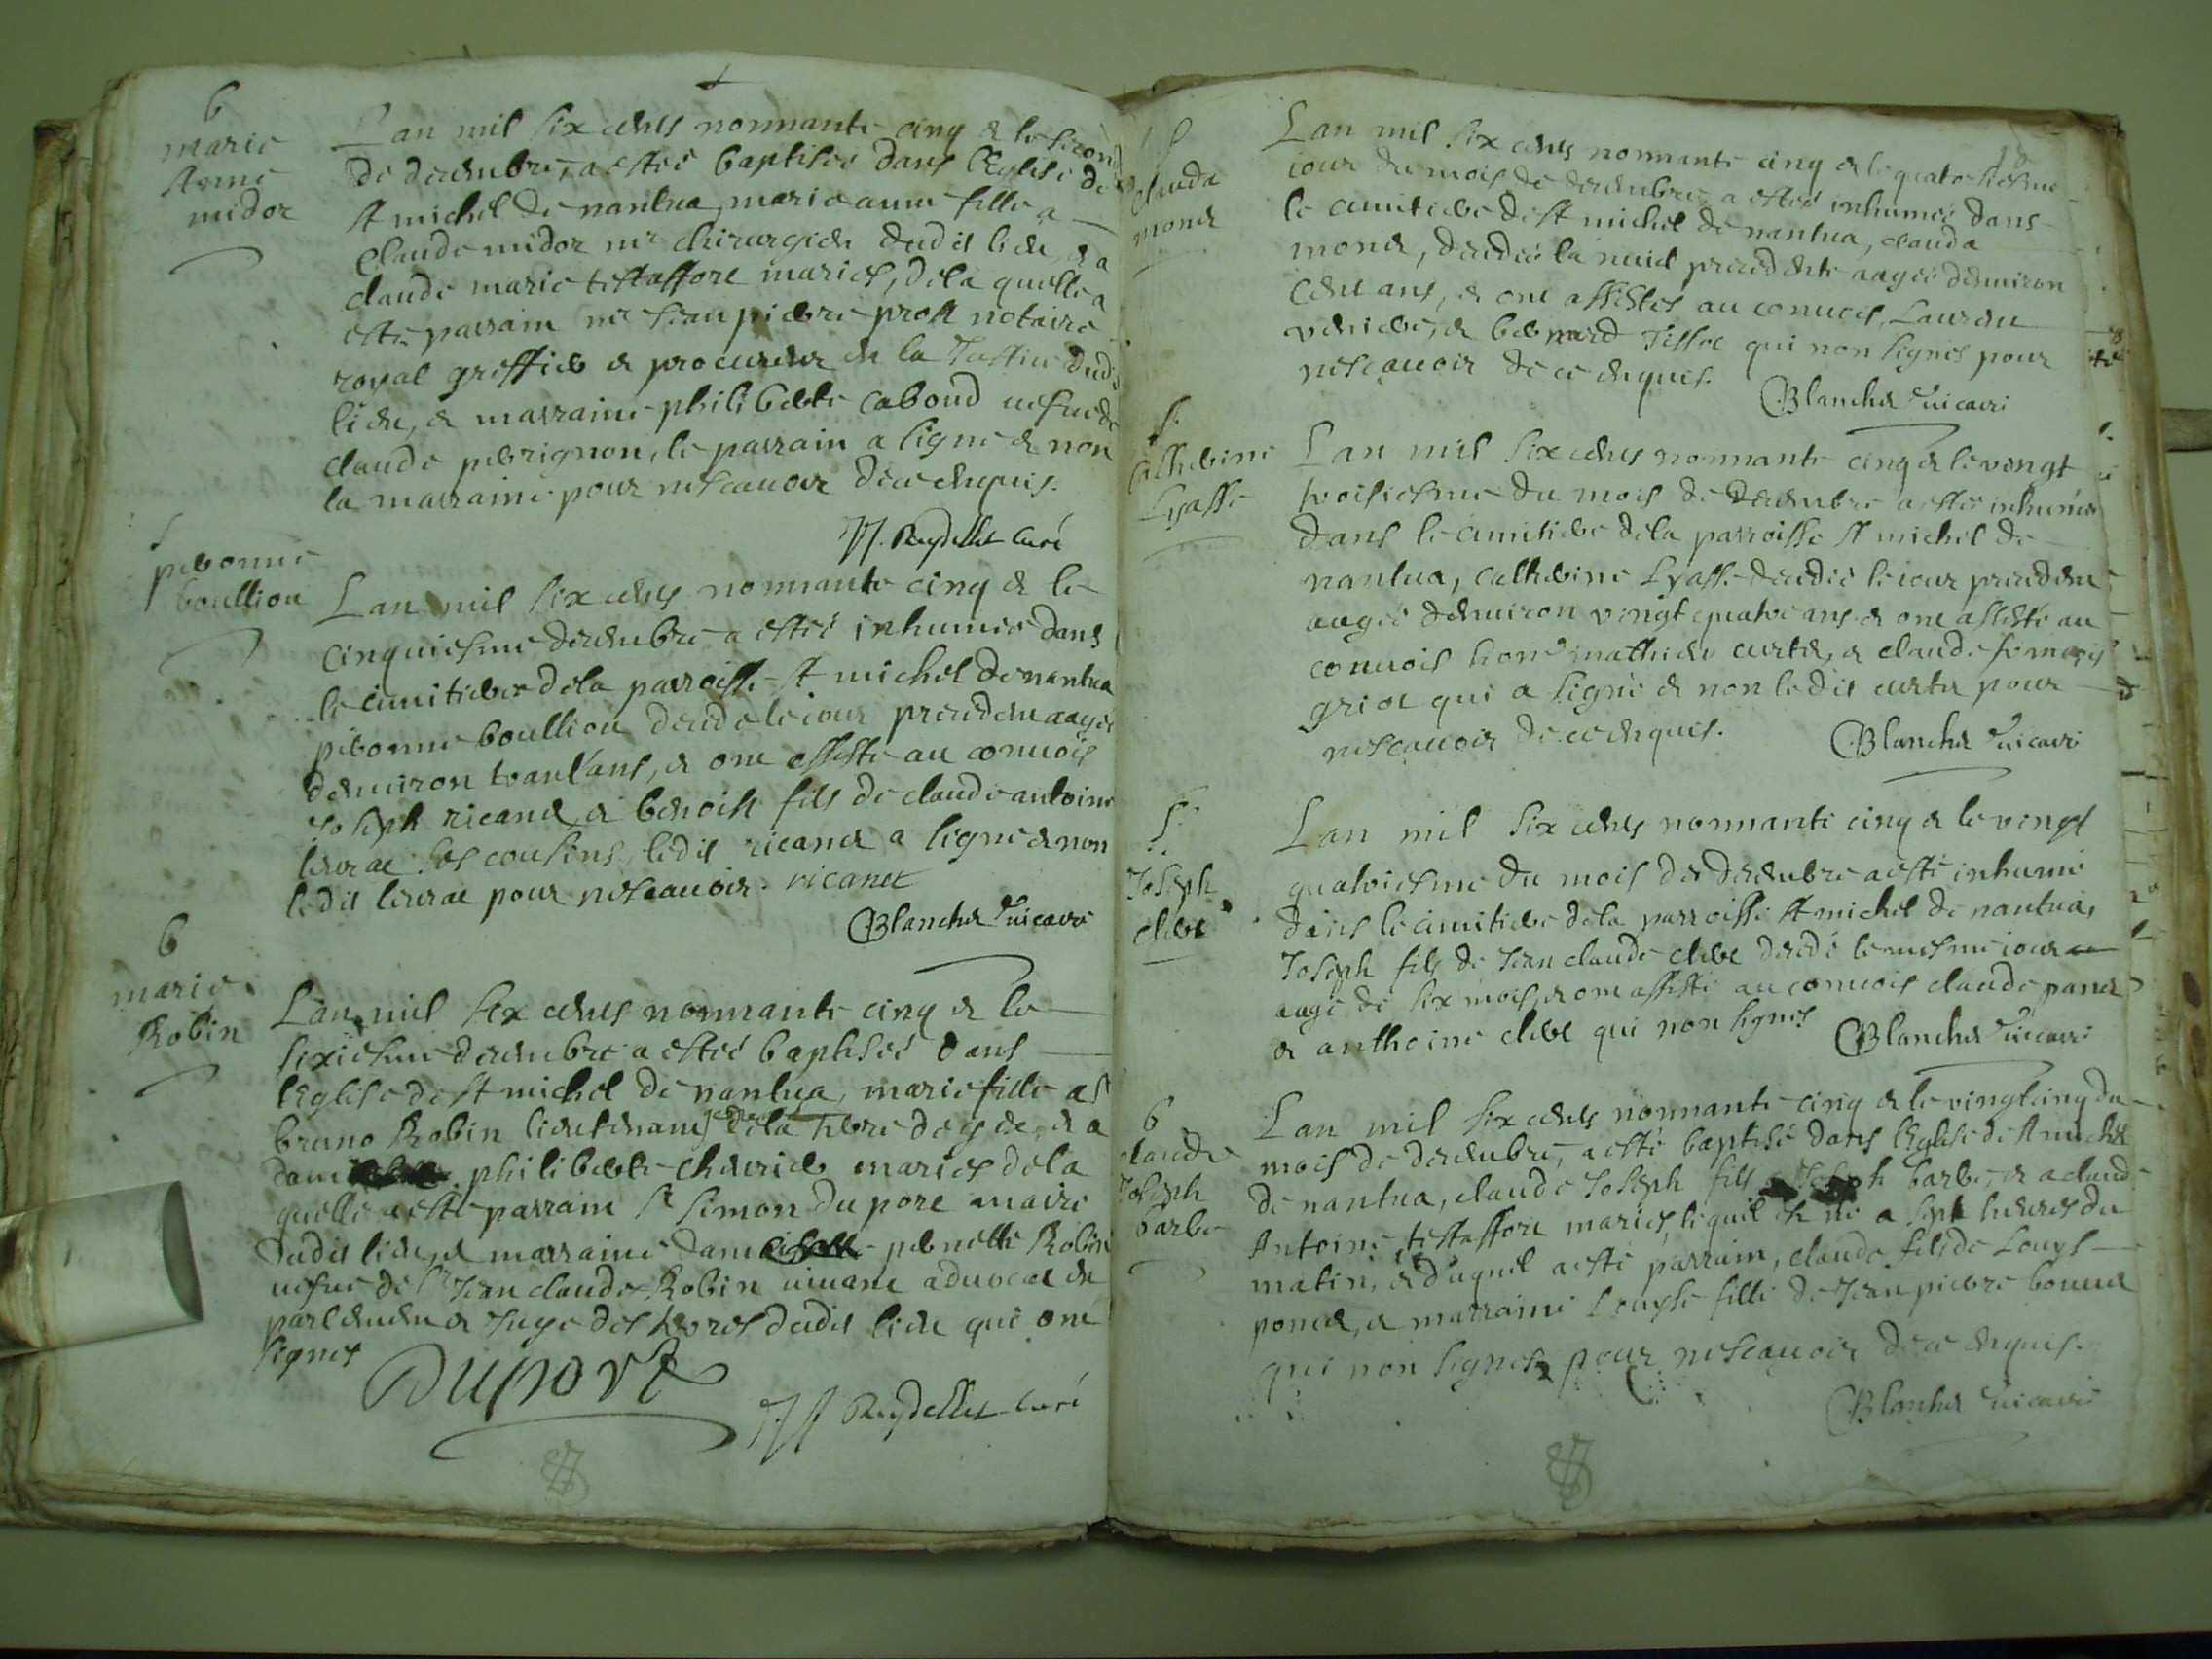 b
marie
Anne
midor
Lan mil six cents nonnante cinq & le second
de decembre, a estéé baptisée dans lEglise de
St michel de nantua, marie anne fille a
Claude midor mr chirurgien dudit lieu, & a
claude marie testaffort mariés, de la quelle a
esté parrain mr Jean pierre prost notaire
royal greffier & procureur en la Justice dudit
lieu, & marraine philiberte caboud vefue de
claude perrignon, le parrain a signé & non
la marraine pour ne scauoir de ce enquis.
Reydellet curé
S
peronne
boullion
Lan mil six cents nonnante cinq & le
cinquiesme decembre a estéé inhumée dans
le cimitiere de la parroisse St michel de nantua
peronne boullion decedée le iour precedent aagée
denuiron trant'ans, & ont assisté au conuois
Joseph ricanet & benoist fils de claude antoine
leurat ses cousins, ledit ricanet a signé & non
ledit leurat pour ne scauoir. ricanet
Blanchet vicaire
b
marie
Robin
Lan mil six cents nonnante cinq & le
sixiesme decembre a estéé baptisée dans
lEglise de St michel de nantua, marie fille a sr
bruno Robin lieutenant de la terre de
philiberte cheurier mariés de la
quelle a esté parrain Sr Simon du port maire
dudit lieu, & marraine pernette Robin
vefue de sr Jean claude Robin viuant aduocat en
parlement & Juge des terres dudit lieu qui ont
signés
Duport
Reydellet curé
S
clauda
monet
Lan mil six cents nonnante cinq & le quatorsiesme
iour du mois de decembre, a estéé inhumée dans
le cimitiere de St michel de nantua, clauda
monet, decedée la nuict precedente aagée denuiron
cent ans, & ont assistés au conuois, Laurent
& bernard Tissot qui non signés pour
ne scauoir de ce enquis.
Blanchet vicaire
S.
Catherine
Lyasse
Lan mil six cents nonnante cinq & le vingt
troisiesme du mois de decembre a estéé inhumée
dans le cimitiere de la parroisse St michel de
nantua, catherine Lyasse decedée le iour precedent
aagée denuiron vingt quatre ans & ont assisté au
conuois mathieu curtet, & claude
griot qui a signé & non le dit curtet pour
ne scauoir de ce enquis.
Blanchet vicaire
S.
Joseph
clerc
Lan mil six cents nonnante cinq & le vingt
quatriesme du mois de decembre a esté inhumé
dans le cimitiere de la parroisse St michel de nantua,
Joseph fils de Jean claude clerc decedé le mesme iour
aagé de six mois, & ont assisté au conuois claude panet
& anthoine clerc qui non signés
Blanchet vicaire
b
claude
Joseph
barbe
Lan mil six cents nonnante cinq & le vingt cinq du
mois de decembre, a esté baptisé dans lEglise de St michel
de nantua, claude Joseph fils a Joseph barbe, & a claude
Antoine testaffort mariés, lequel est né a sept heures du
matin, & duquel a esté parrain, claude fils de Louys
poncet, & marraine Louyse fille de Jean pierre bonnet
qui non signés pour ne scauoir de ce enquis.
Blanchet vicaire